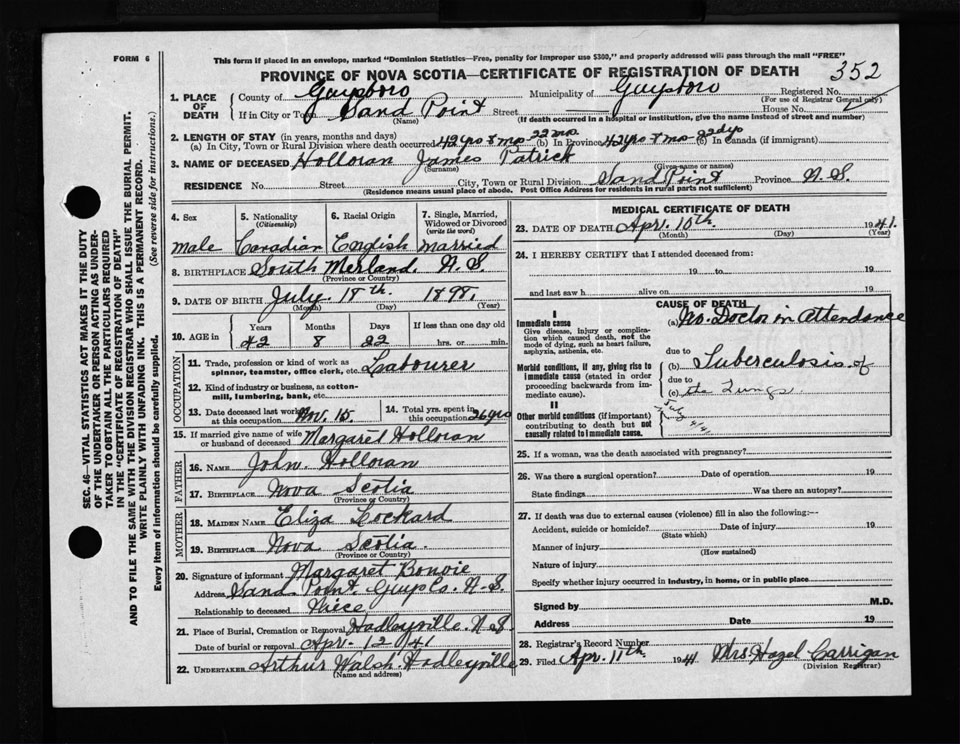 FORM 6
This form if placed in an envelope, marked "Dominion Statistics—Free, penalty for improper use $300," and properly addressed will pass through the mail "FREE"
PROVINCE OF NOVA SCOTIA—CERTIFICATE OF REGISTRATION OF DEATH
352
1. PLACE OF DEATH
County of Guysboro Municipality of Guysboro Registered No.
(For use of Registrar General only)
If in City or Town Sand Point Street House No.
(Name) (If death occurred in a hospital or institution, give the name instead of street and number)
2. LENGTH OF STAY (in years, months and days)
(a) In City, Town or Rural Division where death occurred 42 yrs 8 mos 22 (b) In Province 42 yrs 8 mo 22 dys (c) In Canada (if immigrant)
3. NAME OF DECEASED Holloran James Patrick
(Surname) (Given name or names)
RESIDENCE No. Street City, Town or Rural Division Sand Point Province N.S.
(Residence means usual place of abode. Post Office Address for residents in rural parts not sufficient)
4. Sex 5. Nationality (Citizenship) 6. Racial Origin 7. Single, Married, Widowed or Divorced (write the word)
male Canadian English Married
8. BIRTHPLACE South Merland. N.S.
(Province or Country)
9. DATE OF BIRTH July 18th. 1898.
(Month) (Day) (Year)
10. AGE in Years Months Days If less than one day old
42 8 22 hrs. or min.
OCCUPATION
11. Trade, profession or kind of work as spinner, teamster, office clerk, etc. Labourer
12. Kind of industry or business, as cotton-mill, lumbering, bank, etc.
13. Date deceased last worked at this occupation Nov. 15 14. Total yrs. spent in this occupation 26 yrs
15. If married give name of wife or husband of deceased Margaret Holloran
FATHER
16. NAME John Holloran
17. BIRTHPLACE Nova Scotia
(Province or Country)
MOTHER
18. MAIDEN NAME Eliza Lockard
19. BIRTHPLACE Nova Scotia.
(Province or Country)
20. Signature of informant Margaret Bonvie
Address Sand Point Guys Co. N.S.
Relationship to deceased Niece
21. Place of Burial, Cremation or Removal Hadleyville. N.S.
Date of burial or removal Apr. 12/41
22. UNDERTAKER Arthur Walsh. Hadleyville
(Name and address)
MEDICAL CERTIFICATE OF DEATH
23. DATE OF DEATH Apr. 10th 1941.
(Month) (Day) (Year)
24. I HEREBY CERTIFY that I attended deceased from:
19 to 19
and last saw h alive on 19
CAUSE OF DEATH
I
Immediate cause
Give disease, injury or complication which caused death, not the mode of dying, such as heart failure, asphyxia, asthenia, etc.
(a) No. Doctor in Attendance
due to
Morbid conditions, if any, giving rise to immediate cause (stated in order proceeding backwards from immediate cause).
(b) Tuberculosis of
due to
(c) the Lungs
II
Other morbid conditions (if important) contributing to death but not causally related to immediate cause.
25. If a woman, was the death associated with pregnancy?
26. Was there a surgical operation? Date of operation 19
State findings Was there an autopsy?
27. If death was due to external causes (violence) fill in also the following:—
Accident, suicide or homicide? Date of injury 19
(State which)
Manner of injury
(How sustained)
Nature of injury
Specify whether injury occurred in industry, in home, or in public place
Signed by M.D.
Address Date 19
28. Registrar's Record Number
29. Filed Apr. 11th. 1941 Mrs. Hazel Carrigan
(Division Registrar)
SEC. 46—VITAL STATISTICS ACT MAKES IT THE DUTY
OF THE UNDERTAKER OR PERSON ACTING AS UNDER-
TAKER TO OBTAIN ALL THE PARTICULARS REQUIRED
IN THE "CERTIFICATE OF REGISTRATION OF DEATH"
AND TO FILE THE SAME WITH THE DIVISION REGISTRAR WHO SHALL ISSUE THE BURIAL PERMIT.
WRITE PLAINLY WITH UNFADING INK. THIS IS A PERMANENT RECORD.
Every item of information should be carefully supplied. (See reverse side for instructions.)